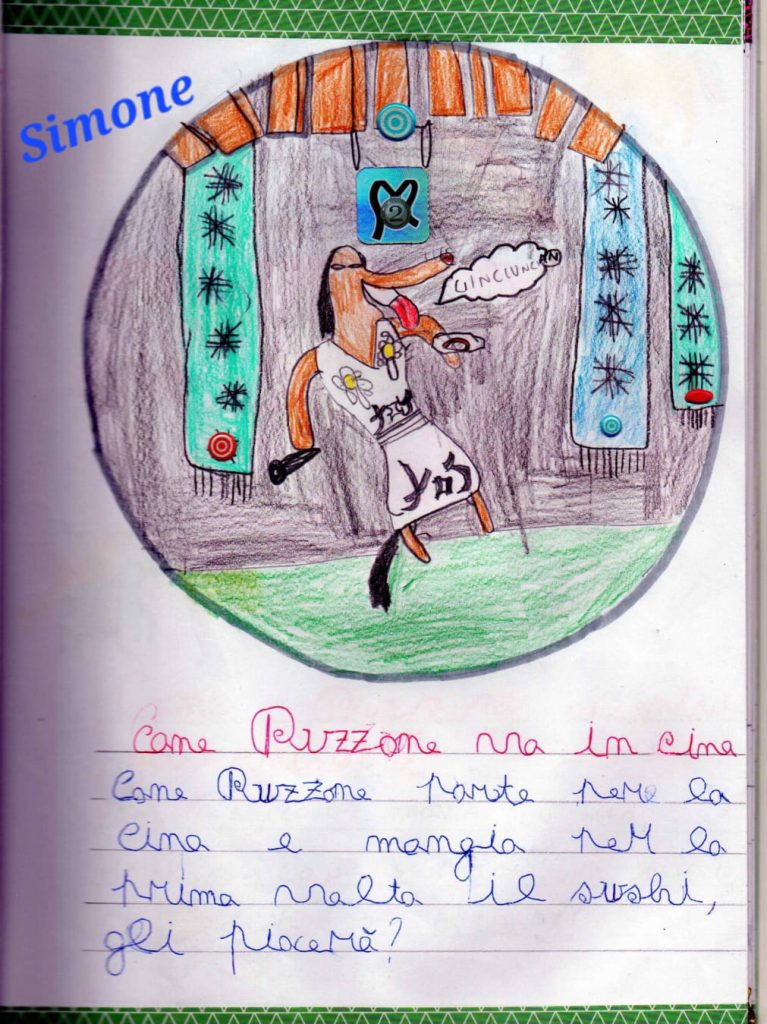 Simone
2
Cane Puzzone va in cina
Cane Puzzone parte per la
cina e mangia per la
prima volta il sushi,
gli piacerà?